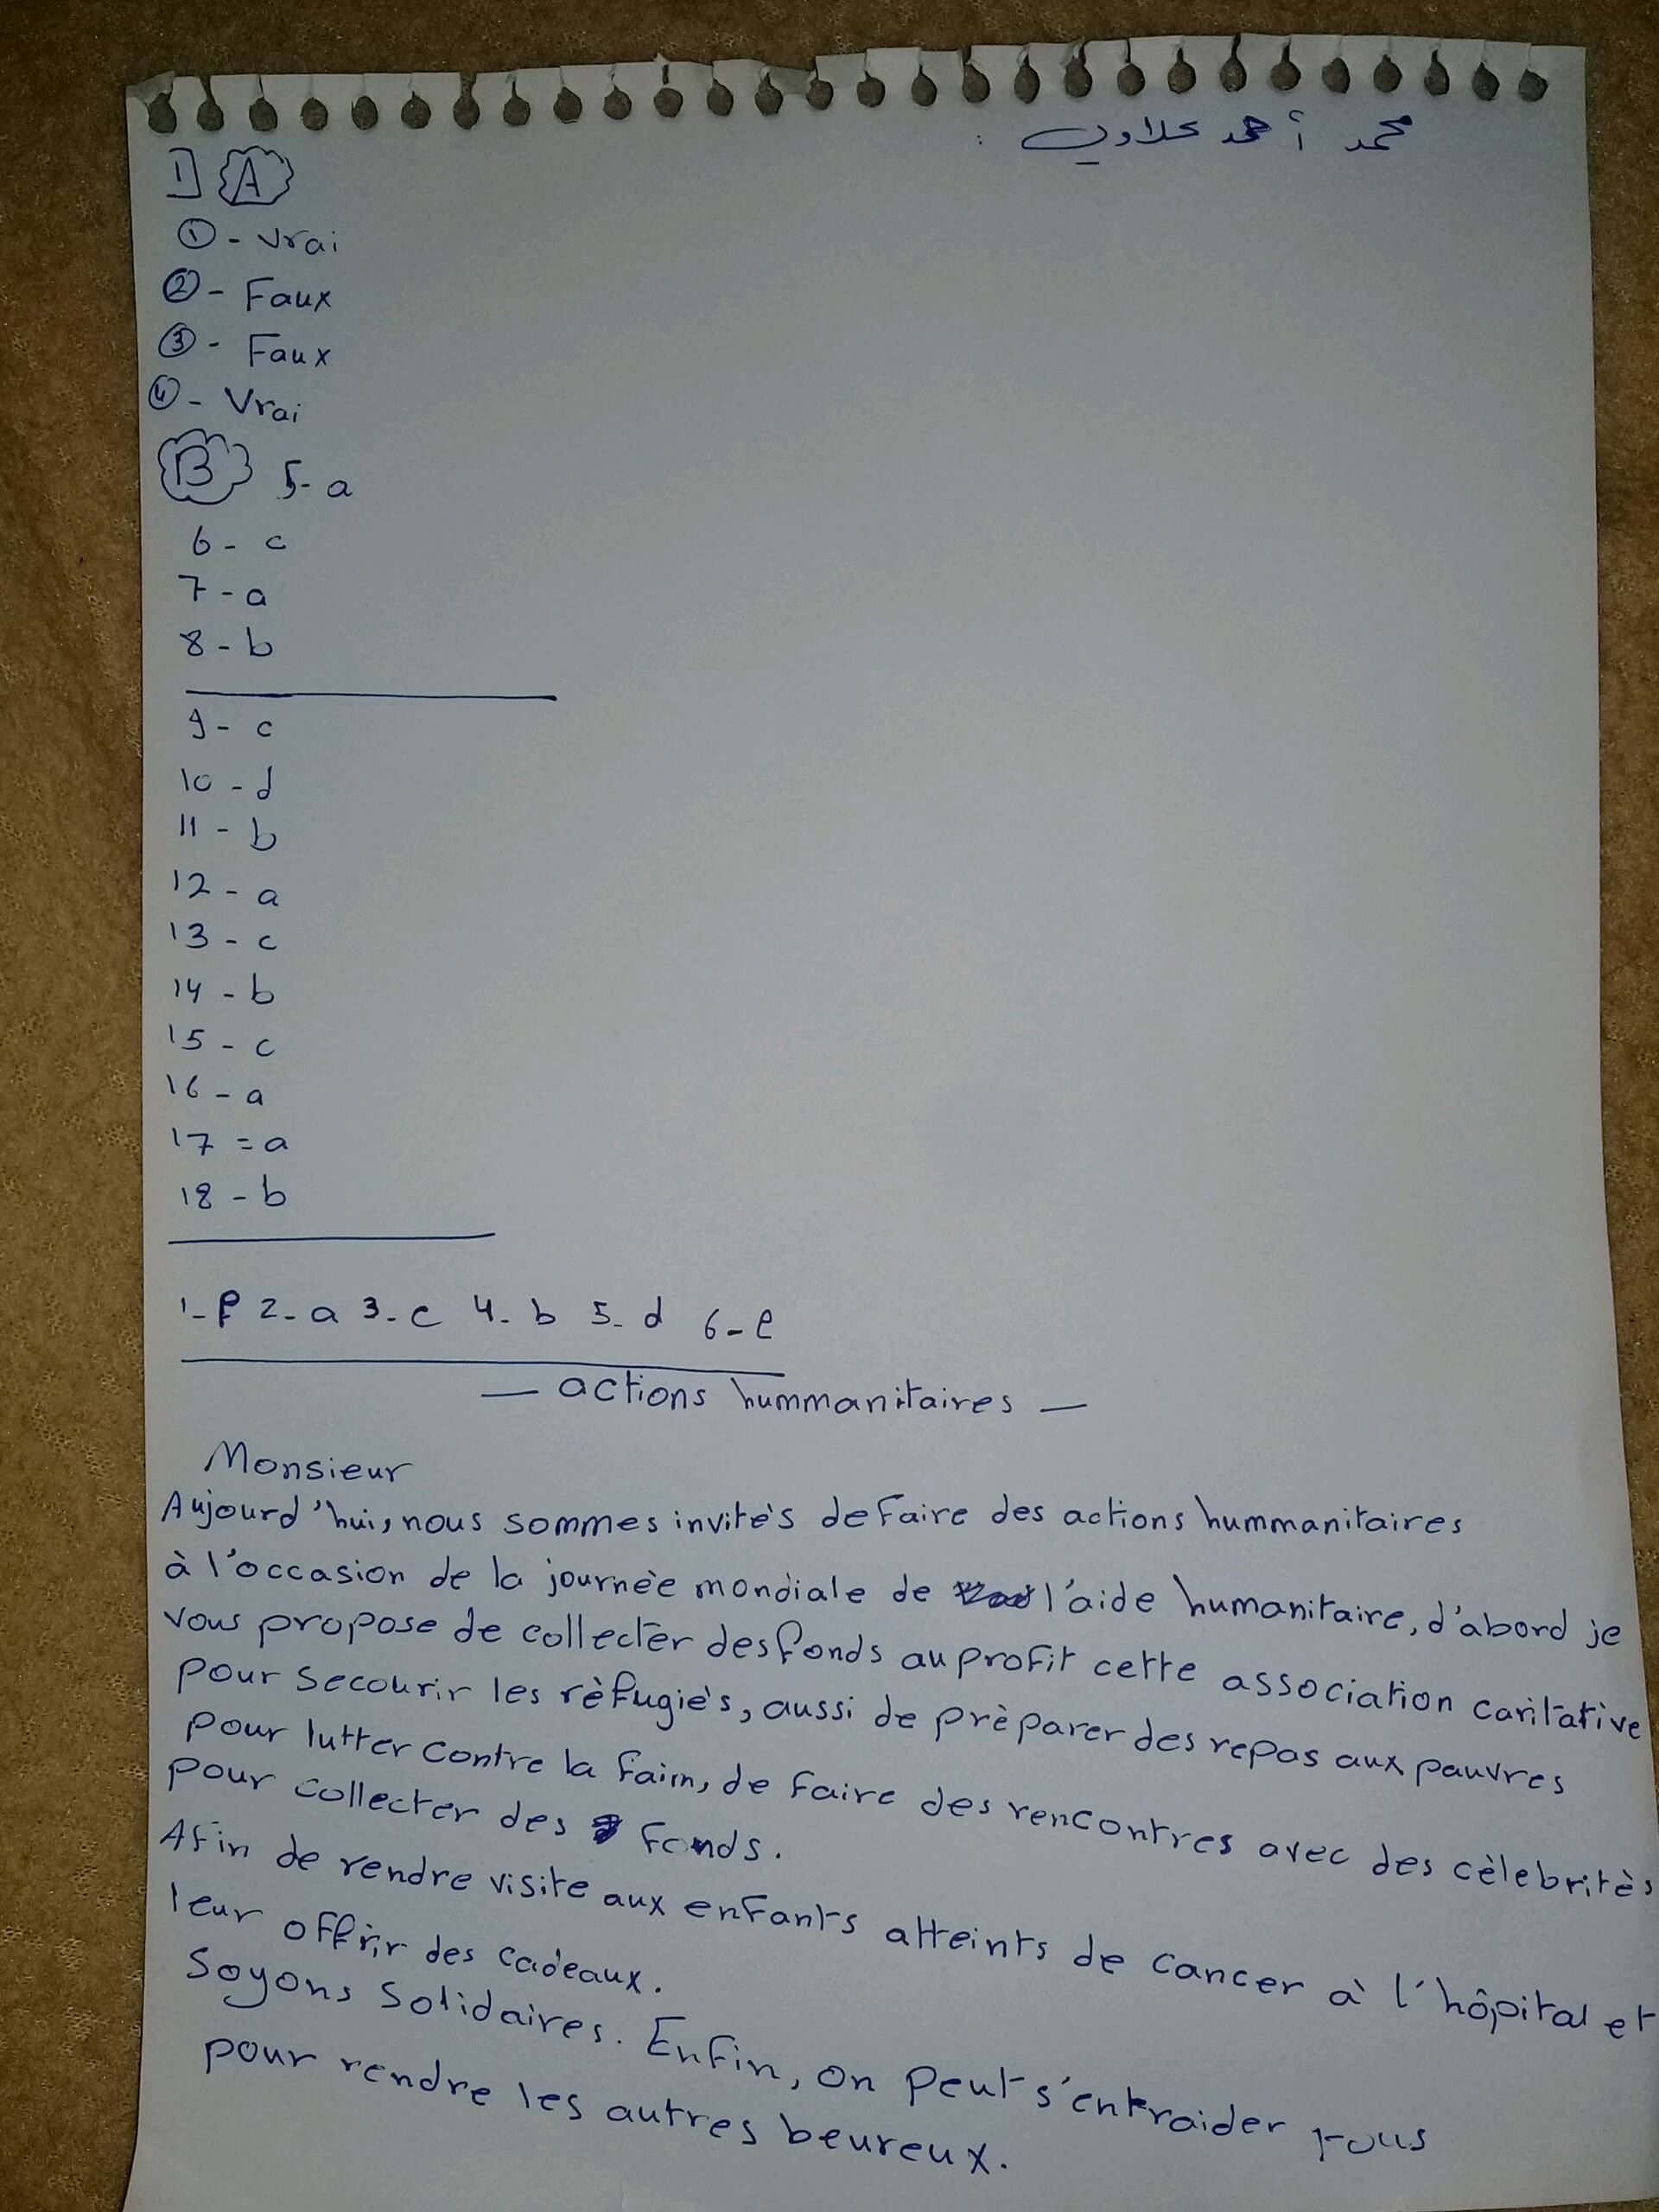 محمد أحمد علاوي :
1] A
① - Vrai
② - Faux
③ - Faux
④ - Vrai
B 5- a
6 - c
7 - a
8 - b
9 - c
10 - d
11 - b
12 - a
13 - c
14 - b
15 - c
16 - a
17 = a
18 - b
1- f 2- a 3- c 4- b 5- d 6- e
— actions hummanitaires —
Monsieur
Aujourd'hui, nous sommes invitès de faire des actions hummanitaires
à l'occasion de la journèe mondiale de l'aide humanitaire, d'abord je
vous propose de collecter des fonds au profit cette association caritative
pour secourir les rèfugiès, aussi de prèparer des repas aux pauvres
pour lutter contre la faim, de faire des rencontres avec des cèlebritès
pour collecter des fonds.
Afin de rendre visite aux enfants atteints de cancer à l'hôpital et
leur offrir des cadeaux.
Soyons solidaires. Enfin, on peut s'entraider tous
pour rendre les autres beureux.